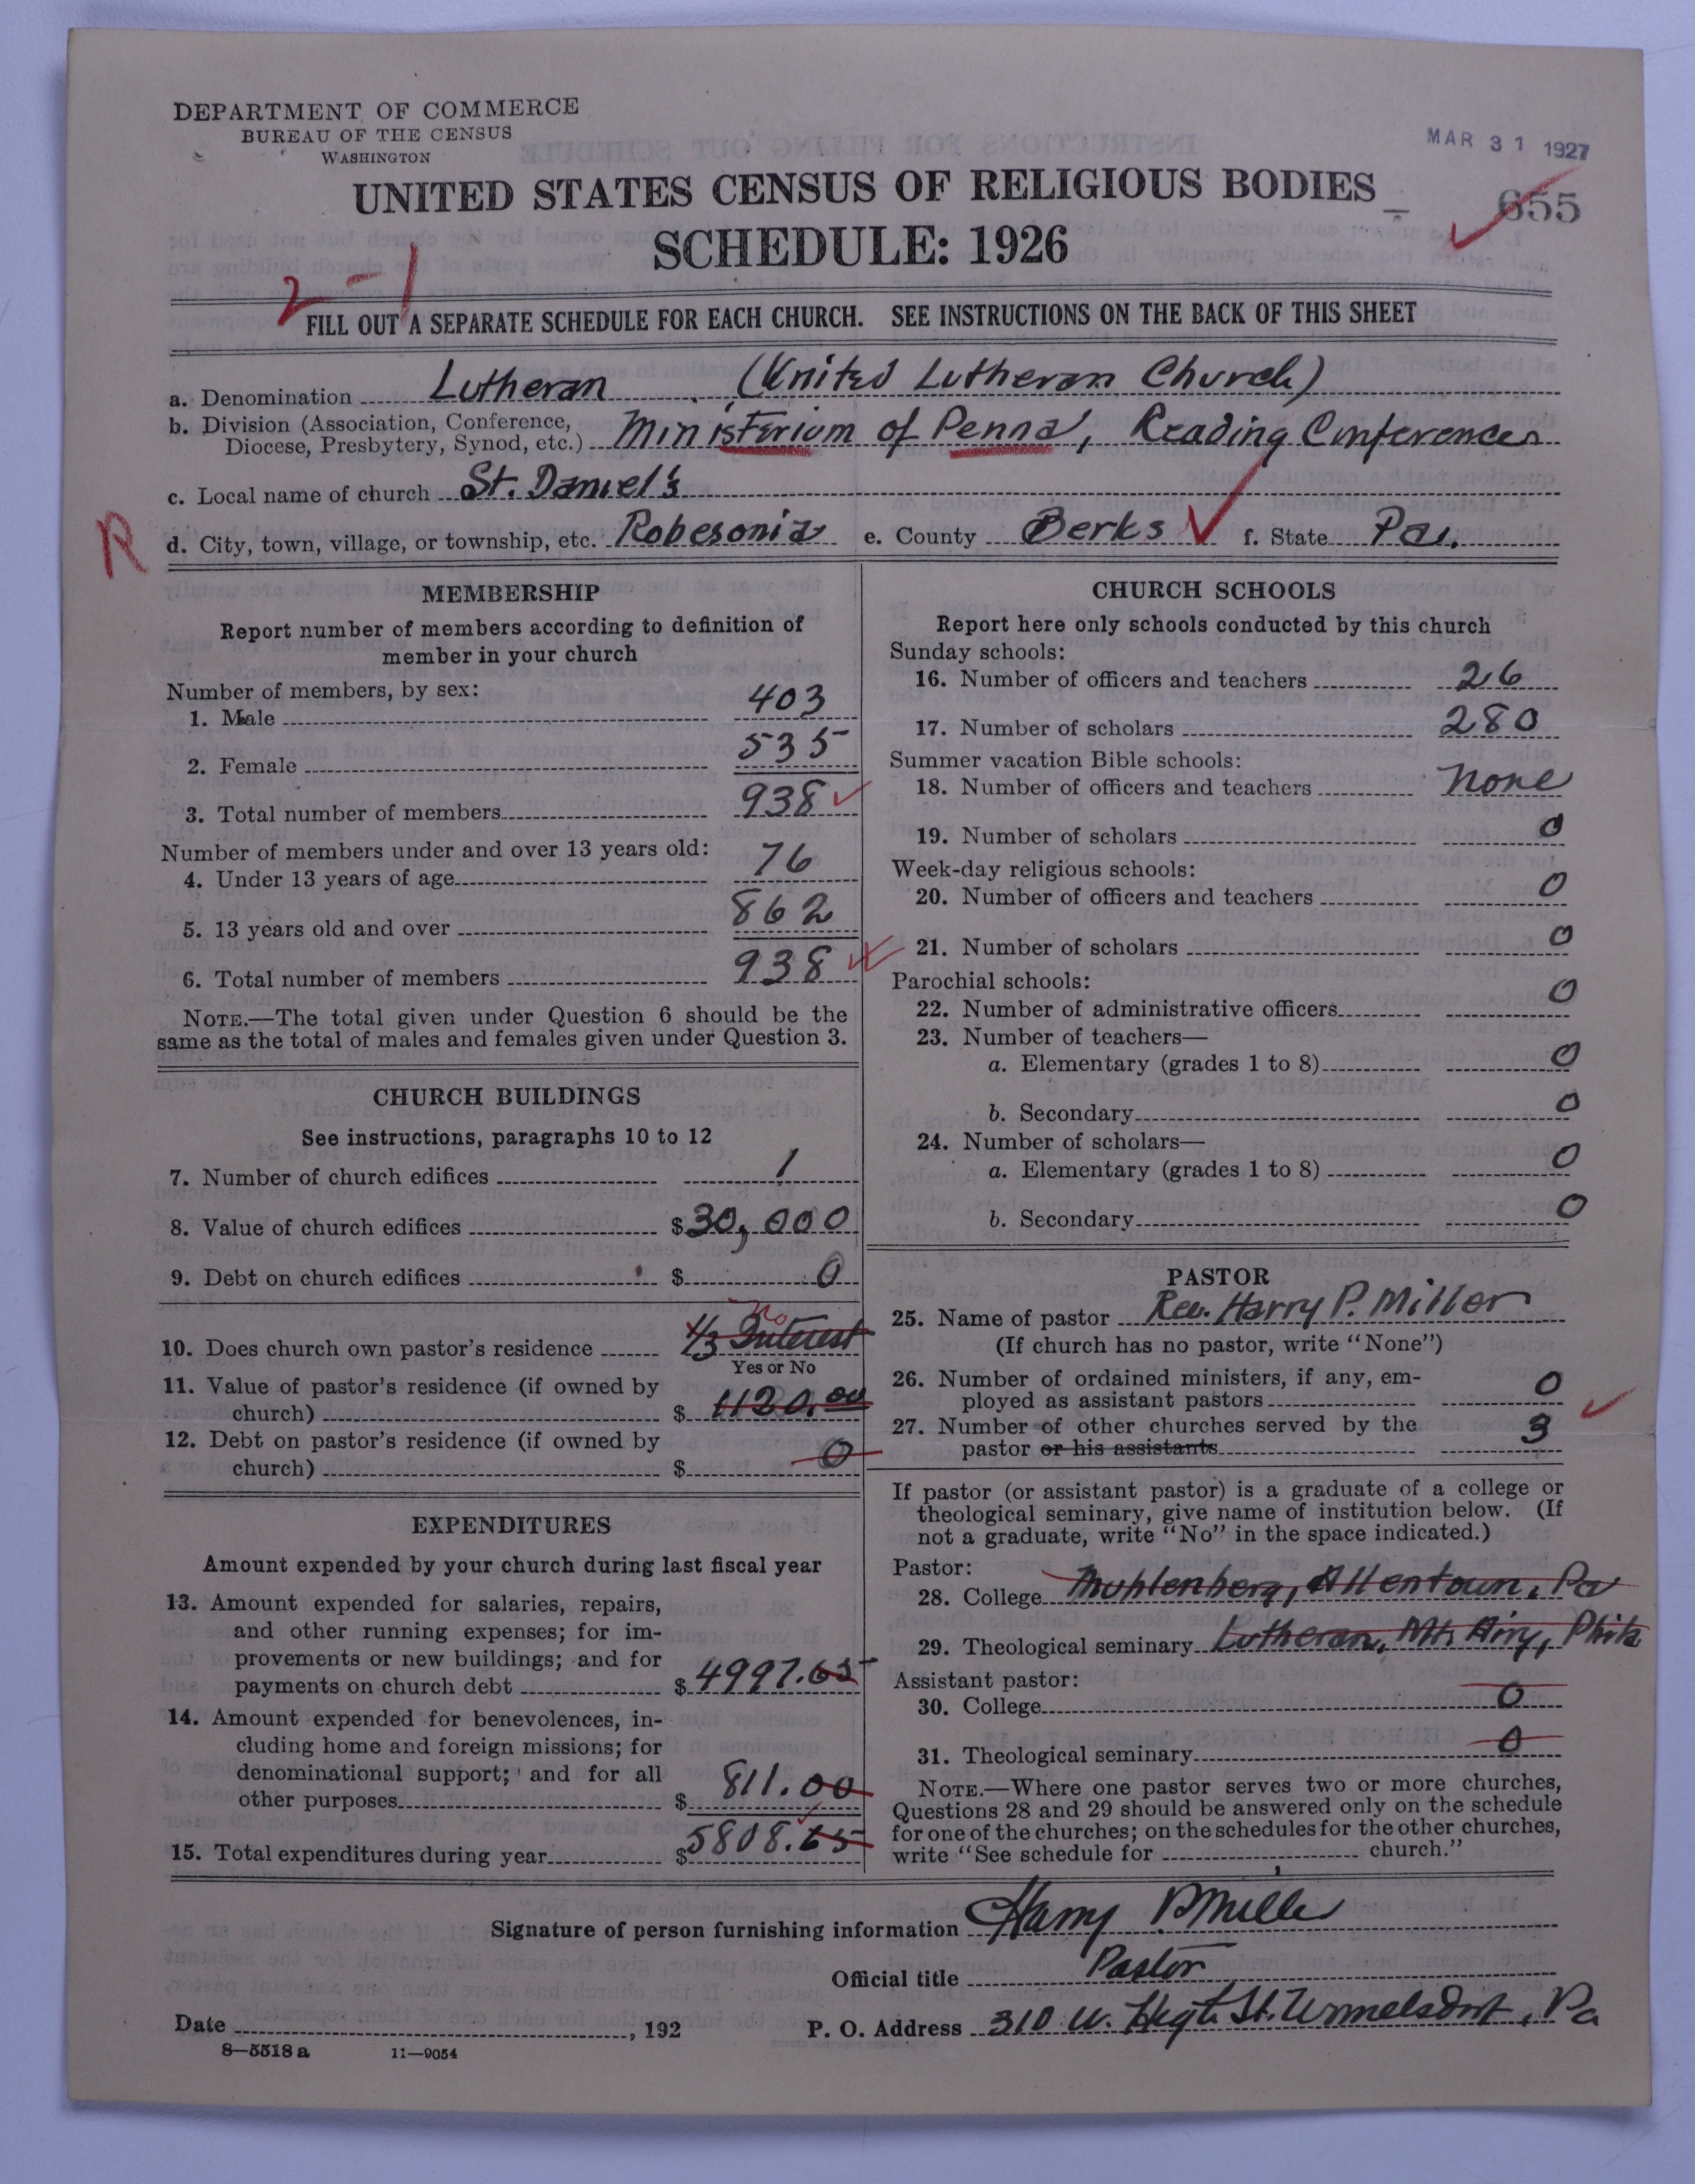 DEPARTMENT OF COMMERCE
BUREAU OF THE CENSUS
WASHINGTON
MAR 31 1927
UNITED STATES CENSUS OF RELIGIOUS BODIES
655
SCHEDULE: 1926
2-1
FILL OUT A SEPARATE SCHEDULE FOR EACH CHURCH. SEE INSTRUCTIONS ON THE BACK OF THIS SHEET
a. Denomination Lutheran (United Lutheran Church)
b. Division (Association, Conference,
Diocese, Presbytery, Synod, etc.) Ministerium of Penna, Reading Conferences
c. Local name of church St. Daniel's
R
d. City, town, village, or township, etc. Robesonia e. County Berks f. State Pa.
MEMBERSHIP
Report number of members according to definition of
member in your church
Number of members, by sex:
1. Male 403
2. Female 535
3. Total number of members 938
Number of members under and over 13 years old:
4. Under 13 years of age 76
5. 13 years old and over 862
6. Total number of members 938
NOTE.—The total given under Question 6 should be the
same as the total of males and females given under Question 3.
CHURCH BUILDINGS
See instructions, paragraphs 10 to 12
7. Number of church edifices 1
8. Value of church edifices $30,000
9. Debt on church edifices $ 0
no
10. Does church own pastor's residence 1/3 Interest
Yes or No
11. Value of pastor's residence (if owned by
church) $ 1120.00
12. Debt on pastor's residence (if owned by
church) $ 0
EXPENDITURES
Amount expended by your church during last fiscal year
13. Amount expended for salaries, repairs,
and other running expenses; for im-
provements or new buildings; and for
payments on church debt $ 4997.65
14. Amount expended for benevolences, in-
cluding home and foreign missions; for
denominational support; and for all
other purposes $ 811.00
15. Total expenditures during year $5808.65
CHURCH SCHOOLS
Report here only schools conducted by this church
Sunday schools:
16. Number of officers and teachers 26
17. Number of scholars 280
Summer vacation Bible schools:
18. Number of officers and teachers none
19. Number of scholars 0
Week-day religious schools:
20. Number of officers and teachers 0
21. Number of scholars 0
Parochial schools:
22. Number of administrative officers 0
23. Number of teachers—
a. Elementary (grades 1 to 8) 0
b. Secondary 0
24. Number of scholars—
a. Elementary (grades 1 to 8) 0
b. Secondary 0
PASTOR
25. Name of pastor Rev. Harry P. Miller
(If church has no pastor, write "None")
26. Number of ordained ministers, if any, em-
ployed as assistant pastors 0
27. Number of other churches served by the
pastor or his assistants 3
If pastor (or assistant pastor) is a graduate of a college or
theological seminary, give name of institution below. (If
not a graduate, write "No" in the space indicated.)
Pastor:
28. College Muhlenberg, Allentown, Pa
29. Theological seminary Lutheran, Mt. Airy, Phila
Assistant pastor:
30. College 0
31. Theological seminary 0
NOTE.—Where one pastor serves two or more churches,
Questions 28 and 29 should be answered only on the schedule
for one of the churches; on the schedules for the other churches,
write "See schedule for church."
Signature of person furnishing information Harry P Miller
Official title Pastor
Date , 192 P. O. Address 310 W. High St. Womelsdorf, Pa
8—5518 a 11—9054